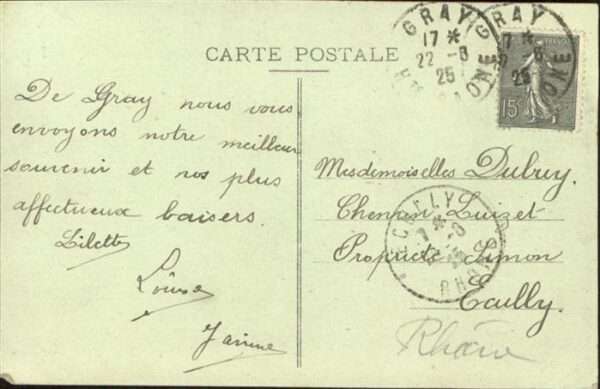 CARTE POSTALE
GRAY
17 *
22 - 8
25
GRAY
25
15
De Gray nous vous
envoyons notre meilleur
souvenir et nos plus
affectueux baisers
Lilette
Louise
Janine
Mesdemoiselles Dubruy
Chemin Luizet
Propriété Simon
Ecully
Rhône
ECULLY
RHONE